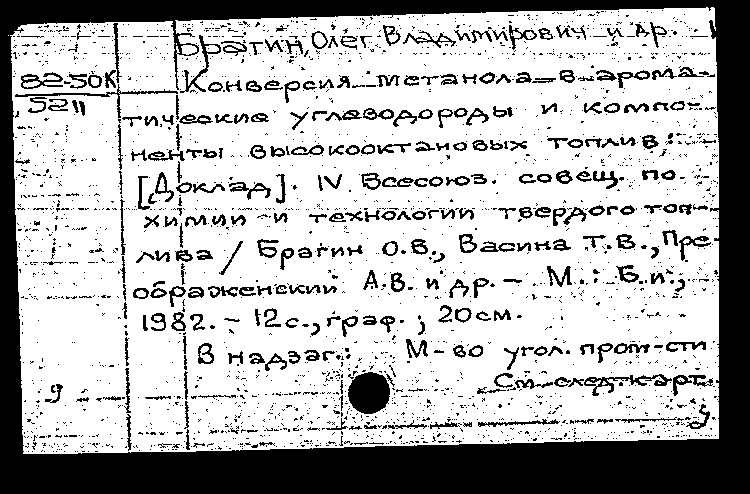 Брагин, Олег Владимирович и др.
82-50К
5211
Конверсия метанола в арома-
тические углеводороды и компо-
ненты высокооктановых топлив:
[Доклад]. IV Всесоюз. совещ. по
химии и технологии твердого топ-
лива / Брагин О.В., Васина Т.В., Пре-
ображенский А.В. и др. – М.: Б.и.,
1982. – 12 с., граф.; 20 см.
В надзаг.: М-во угол. пром-сти
См. след. карт.
9